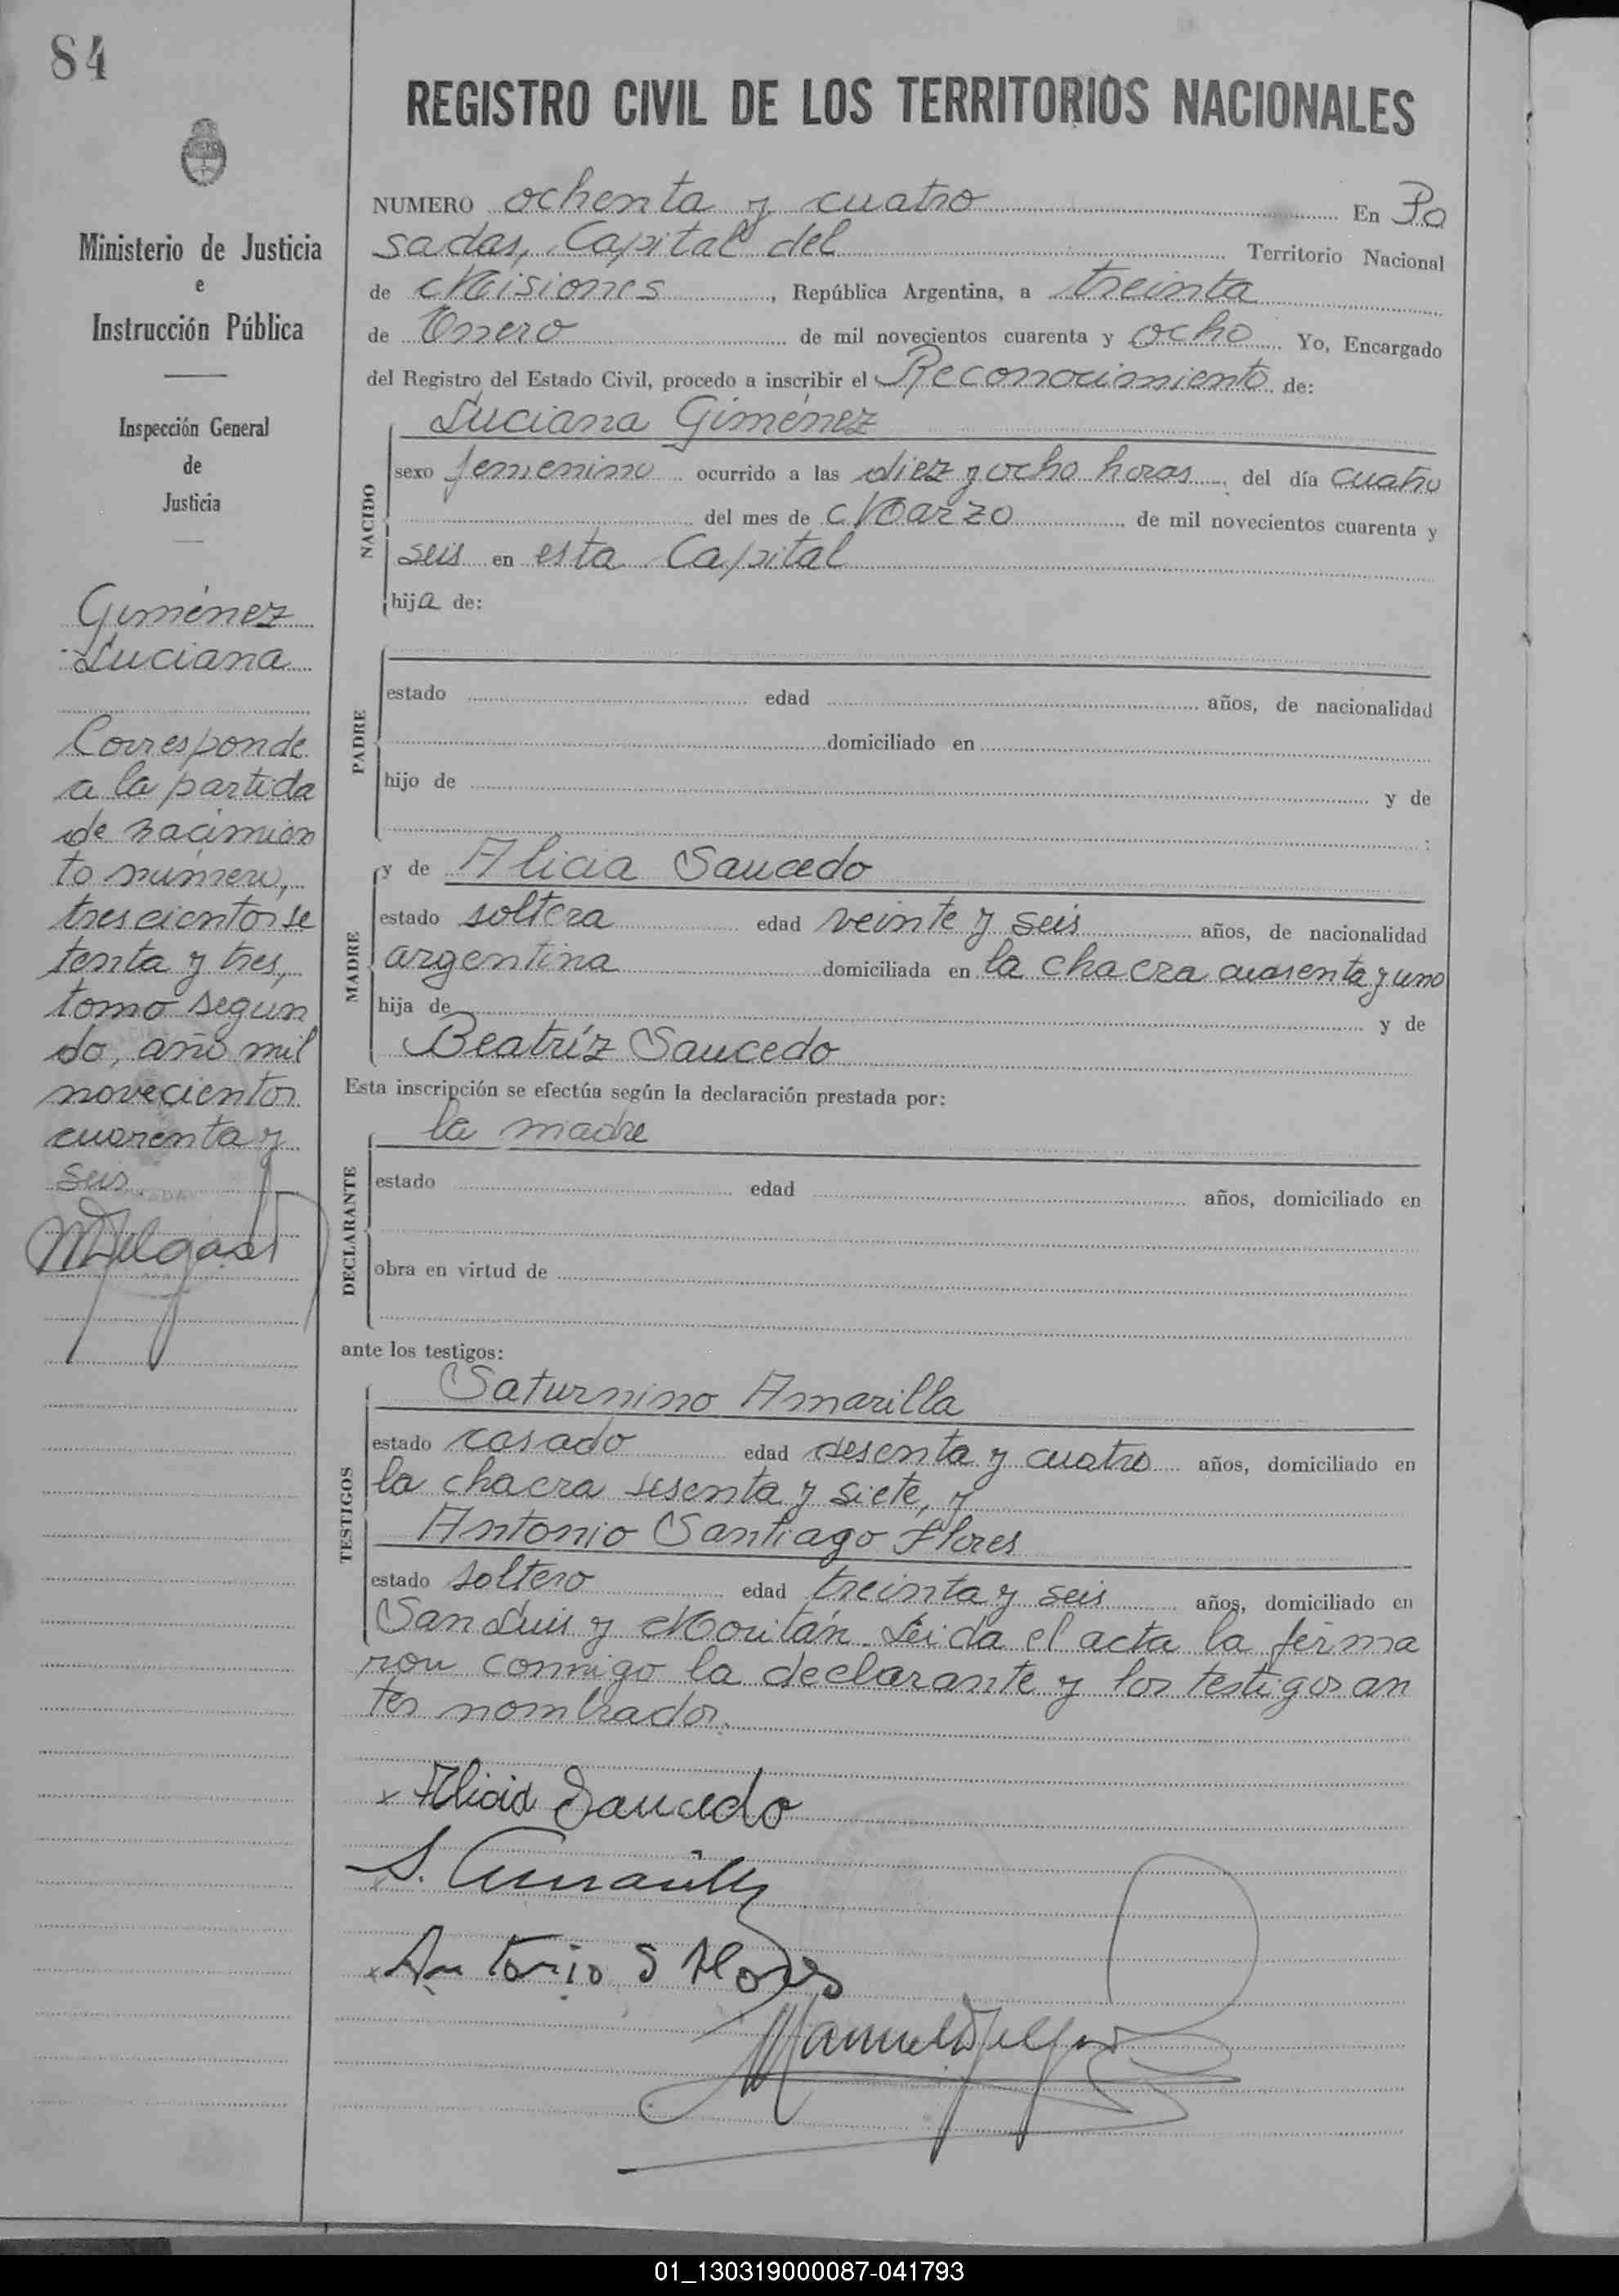 84
Ministerio de Justicia
e
Instrucción Pública
Inspección General
de
Justicia
Giménez
Luciana
Corresponde
a la partida
de nacimien
to número,
trescientos se
tenta y tres,
tomo segun
do, año mil
novecientos
cuarenta y
seis.
REGISTRO CIVIL DE LOS TERRITORIOS NACIONALES
NUMERO ochenta y cuatro En Po
sadas, Capital del Territorio Nacional
de Misiones, República Argentina, a treinta
de Enero de mil novecientos cuarenta y ocho Yo, Encargado
del Registro del Estado Civil, procedo a inscribir el Reconocimiento de:
NACIDO
Luciana Giménez
sexo femenino ocurrido a las diez y ocho horas, del día cuatro
del mes de Marzo de mil novecientos cuarenta y
seis en esta Capital
hija de:
PADRE
estado edad años, de nacionalidad
domiciliado en
hijo de y de
;
MADRE
y de Alicia Saucedo
estado soltera edad veinte y seis años, de nacionalidad
argentina domiciliada en la chacra cuarenta y uno
hija de y de
Beatríz Saucedo
Esta inscripción se efectúa según la declaración prestada por:
DECLARANTE
la madre
estado edad años, domiciliado en
obra en virtud de
ante los testigos:
TESTIGOS
Saturnino Amarilla
estado casado edad sesenta y cuatro años, domiciliado en
la chacra sesenta y siete, y
Antonio Santiago Flores
estado soltero edad treinta y seis años, domiciliado en
San Luis y Moritán. Leida el acta la firma
ron conmigo la declarante y los testigos an
tes nombrados.
x Alicia Saucedo
S. Amarilla
x Antonio S Flores
01_130319000087-041793